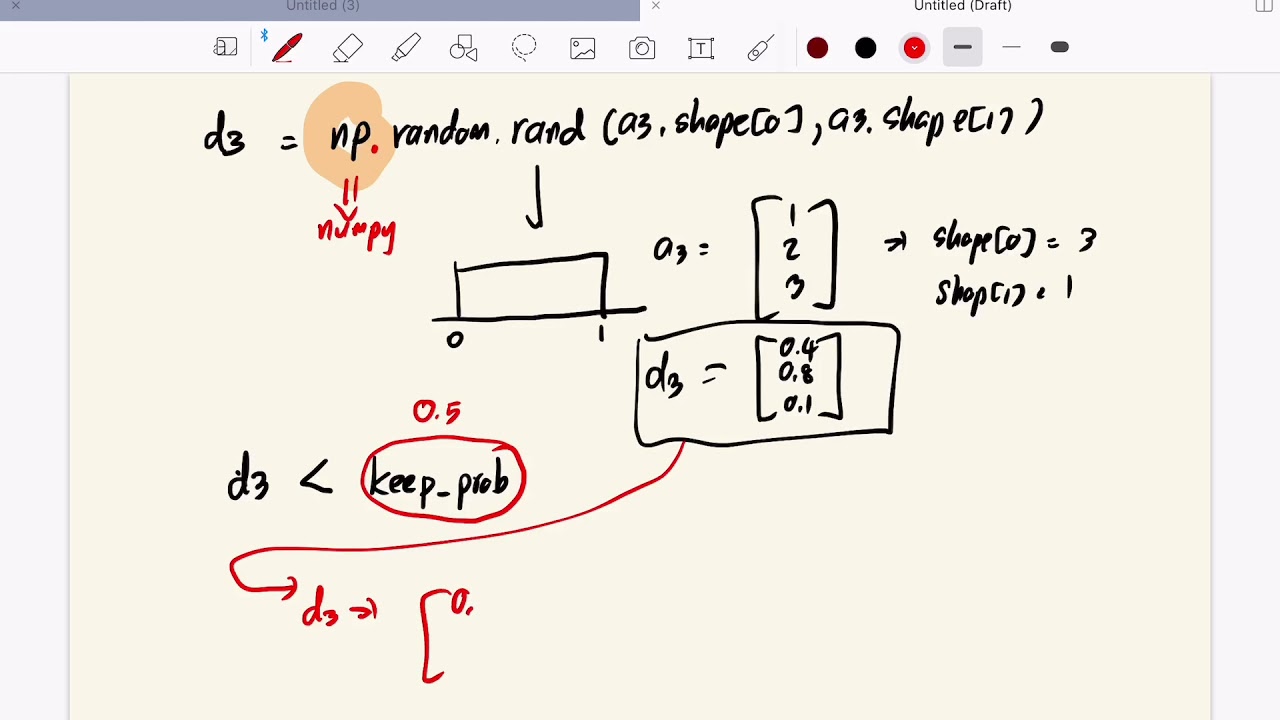 Untitled (3)
Untitled (Draft)
d3 = np.random.rand (a3.shape[0], a3.shape[1])
numpy
a3 = [1 2 3] → shape[0] = 3
shap[1] = 1
0 1
d3 = [0.4 0.8 0.1]
0.5
d3 < keep_prob
d3 → [0.